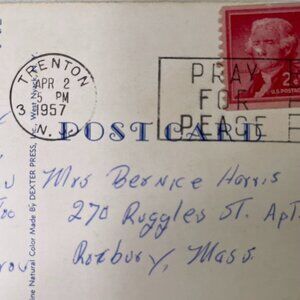 TRENTON
APR 2
5 PM
1957
3
N.J.
PRAY
FOR
PEACE
2¢
U.S. POSTAGE
POST CARD
Mrs Bernice Harris
270 Ruggles St. Apt
Roxbury, Mass.
ine Natural Color Made By DEXTER PRESS, West Nyack, N.Y.